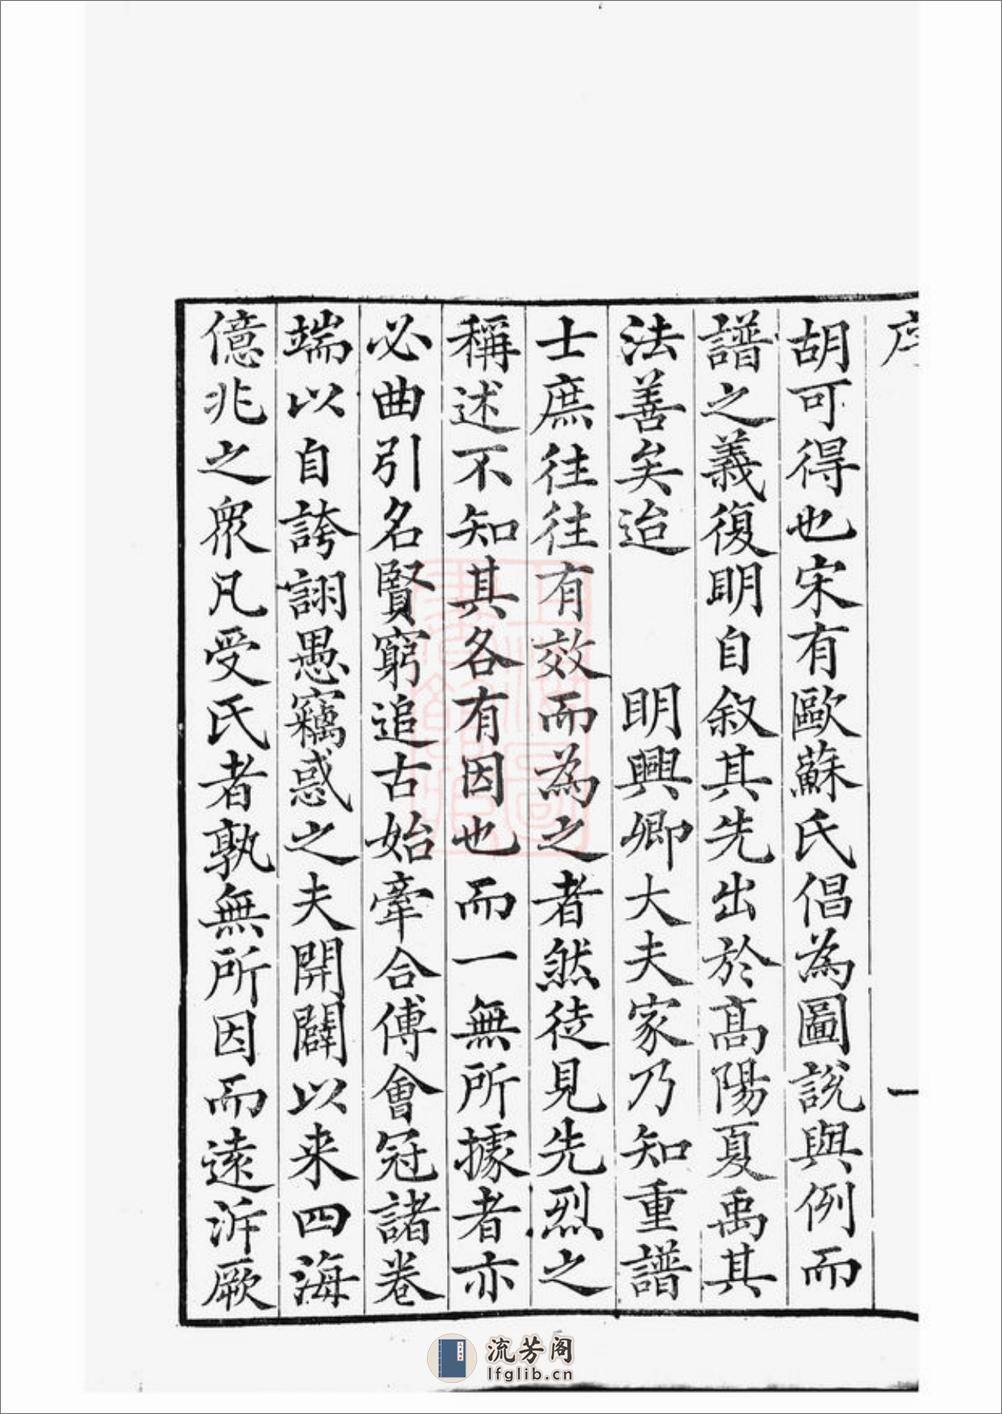 序 一
胡可得也宋有歐蘇氏倡為圖說與例而
譜之義復明自叙其先出於高陽夏禹其
法善矣迨 明興卿大夫家乃知重譜
士庶往往有效而為之者然徒見先烈之
稱述不知其各有因也而一無所據者亦
必曲引名賢窮追古始牽合傅會冠諸卷
端以自誇詡愚竊惑之夫開闢以来四海
億兆之衆凡受氏者孰無所因而遠泝厥
流芳阁
lfglib.cn